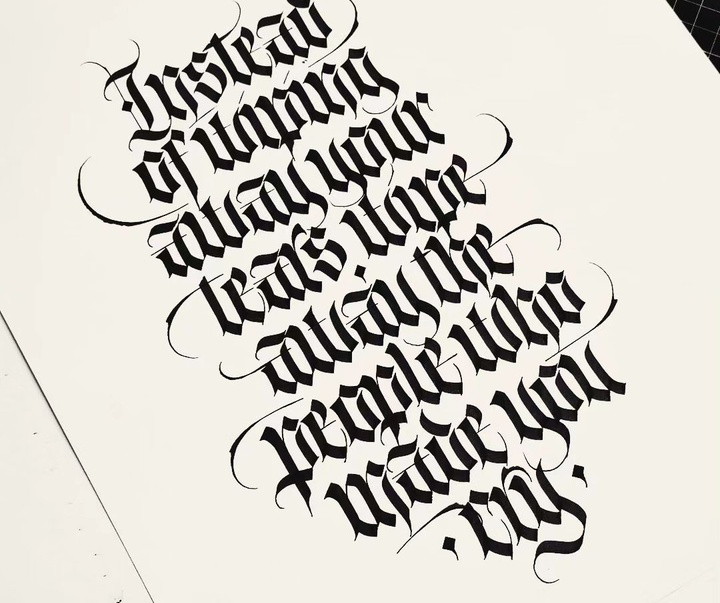 Instead
of wiping
away your
tears wipe
away the
people who
made you
cry.